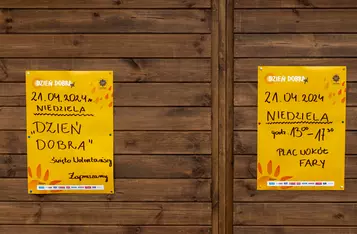 DZIEŃ DOBRY
21.04.2024r.
NIEDZIELA
"DZIEŃ
DOBRA"
Święto Wolontariuszy
Zapraszamy
DZIEŃ DOBRA
21.04.2024
NIEDZIELA
godz. 13⁰⁰-17³⁰
PLAC WOKÓŁ
FARY